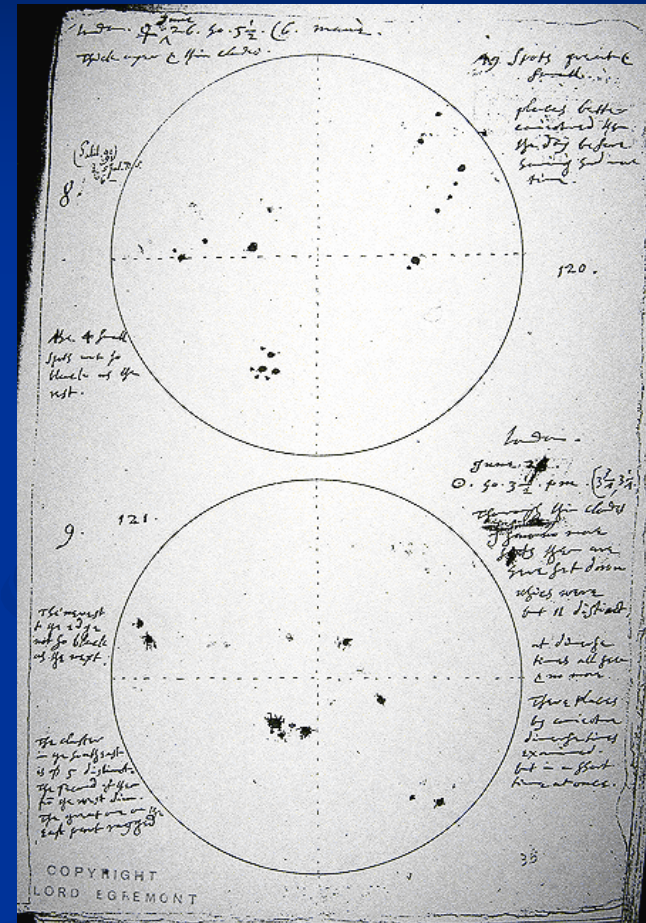 London. ♀ June 26. ho. 5 1/2 (6. mane.
Thick ayer & thin cloudes.
19 Spots great &
small.
places better
conceived then
the day before
having had more
time.
8.
120.
The 4 small
spots not so
black as the
rest.
London.
June. 2
☉. ho. 3 1/2. pm. (3 3/4
Through thin cloudes
more
spots then are
here set down
which were
but 11 distinct,
at diverse
times all seen
& no more.
These places
by
diverse times
examined.
but in a short
time at once.
9.
121.
The nerest
to ye edge
not so black
as the next.
The cluster
in ye southeast
is of 5 distinct.
The second of them
to ye west dim.
The great one on the
East part ragged
35
COPYRIGHT
LORD EGREMONT